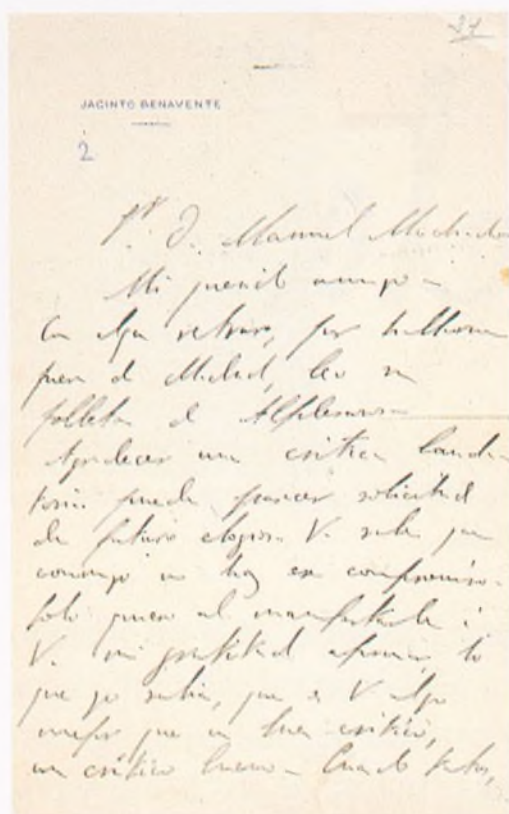 34
JACINTO BENAVENTE
2
Sr. D. Manuel Machado
Mi querido amigo –
Con algun retraso, por hallarme
fuera de Madrid, leo su
folletin de
Agradecer una critica lauda-
toria puede parecer solicitud
de futuro elogio. V. sabe que
conmigo no hay ese compromiso.
Solo quiero al manifestarle á
V. mi gratitud afirmar lo
que yo sabia, que es V algo
mejor que un buen critico,
un critico bueno – Cuando